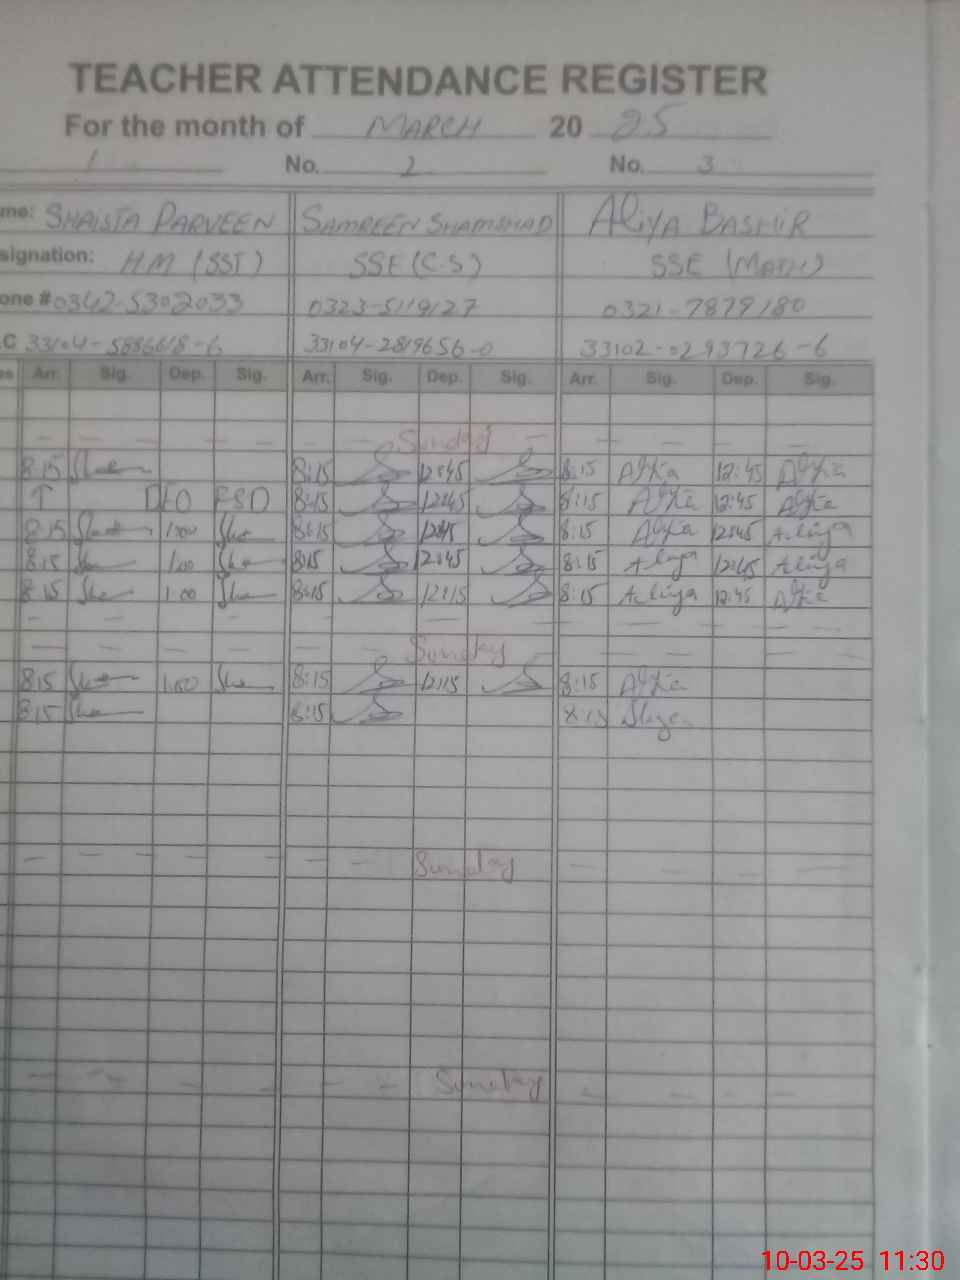 TEACHER ATTENDANCE REGISTER
For the month of MARCH 20 25
1 No. 2 No. 3
me: SHAISTA PARVEEN SAMREEN SHAMSHAD ALiYA BASHIR
signation: HM (SST) SSE (C.S) SSE (MATH)
one # 0342-5302033 0323-5119127 0321-7879180
.C 33104- -6 33104-2819656-0 33102-0293726-6
es Arr. Sig. Dep. Sig. Arr. Sig. Dep. Sig. Arr. Sig. Dep. Sig.
Sunday
8:15 8:15 12:45 8:15 12:45
↑ DEO FSD 8:15 12:45 8:15 12:45
8:15 1:00 8:15 12:45 8:15 12:45 Aliya
8:15 1:00 8:15 12:45 8:15 Aliya 12:45 Aliya
8:15 1:00 8:15 12:15 8:15 Aliya 12:45
Sunday
8:15 1:00 8:15 12:15 8:15
8:15 8:15 8:15
Sunday
Sunday
10-03-25 11:30